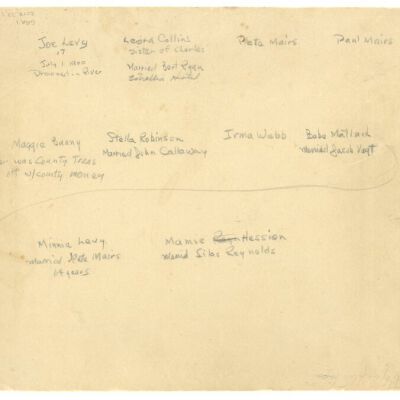 Joe Levy
17
July 1 1900
Drowned in River
Leora Collins
sister of Charles
Married Bert Ryan
Pete Mairs
Paul Mairs
Maggie
was County Treas
off w/county money
Stella Robinson
Married John Callaway
Irma Webb
Babe Mallard
Married Jacob
Minnie Levy
Married Pete Mairs
14 years
Mamie Hession
Married Silas Reynolds